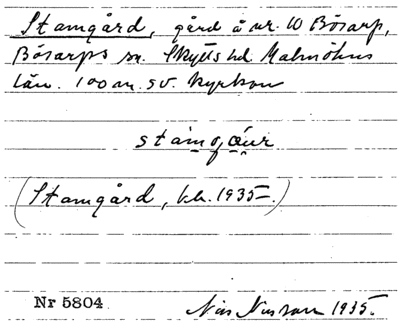 Stamgård, gård å nr. 10 Bösarp,
Bösarps sn. Skytts hd Malmöhus
län. 100 m. SV. kyrkan
(Stamgård, kk. 1935.)
Nr 5804
Nils Nilsson 1935.